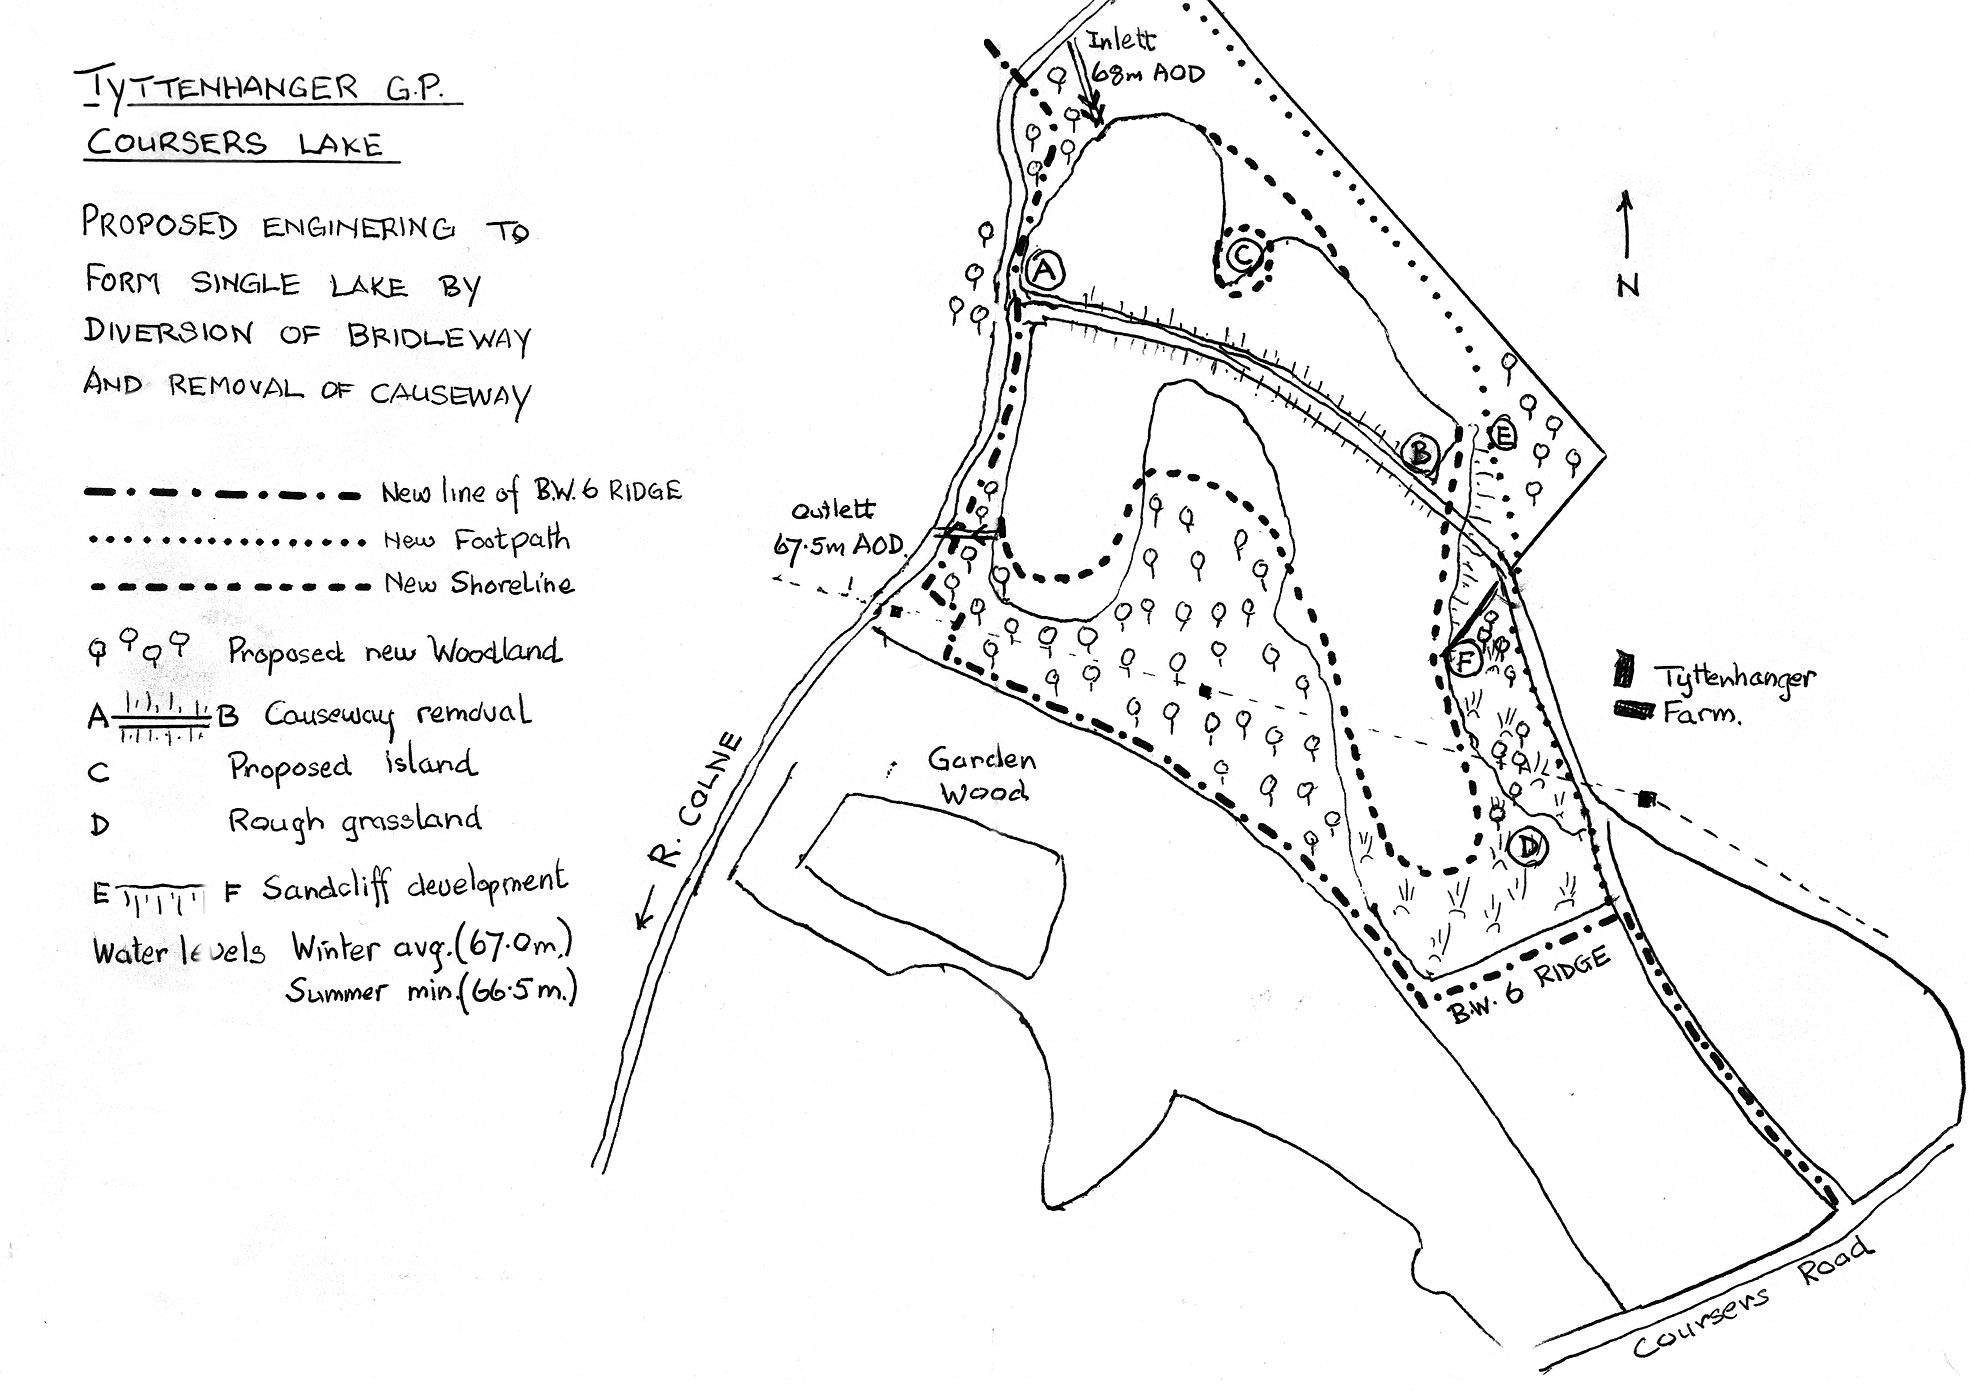 TYTTENHANGER G.P.
COURSERS LAKE
PROPOSED ENGINERING TO
FORM SINGLE LAKE BY
DIVERSION OF BRIDLEWAY
AND REMOVAL OF CAUSEWAY
New line of B.W. 6 RIDGE
New Footpath
New Shoreline
Proposed new Woodland
A B Causeway removal
C Proposed island
D Rough grassland
E F Sandcliff development
Water levels Winter avg. (67.0m.)
Summer min. (66.5m.)
Inlett
68m AOD
N
A
C
B
E
Outlett
67.5m AOD.
F
Tyttenhanger
Farm.
D
Garden
Wood
R. COLNE
B.W. 6 RIDGE
Coursers Road